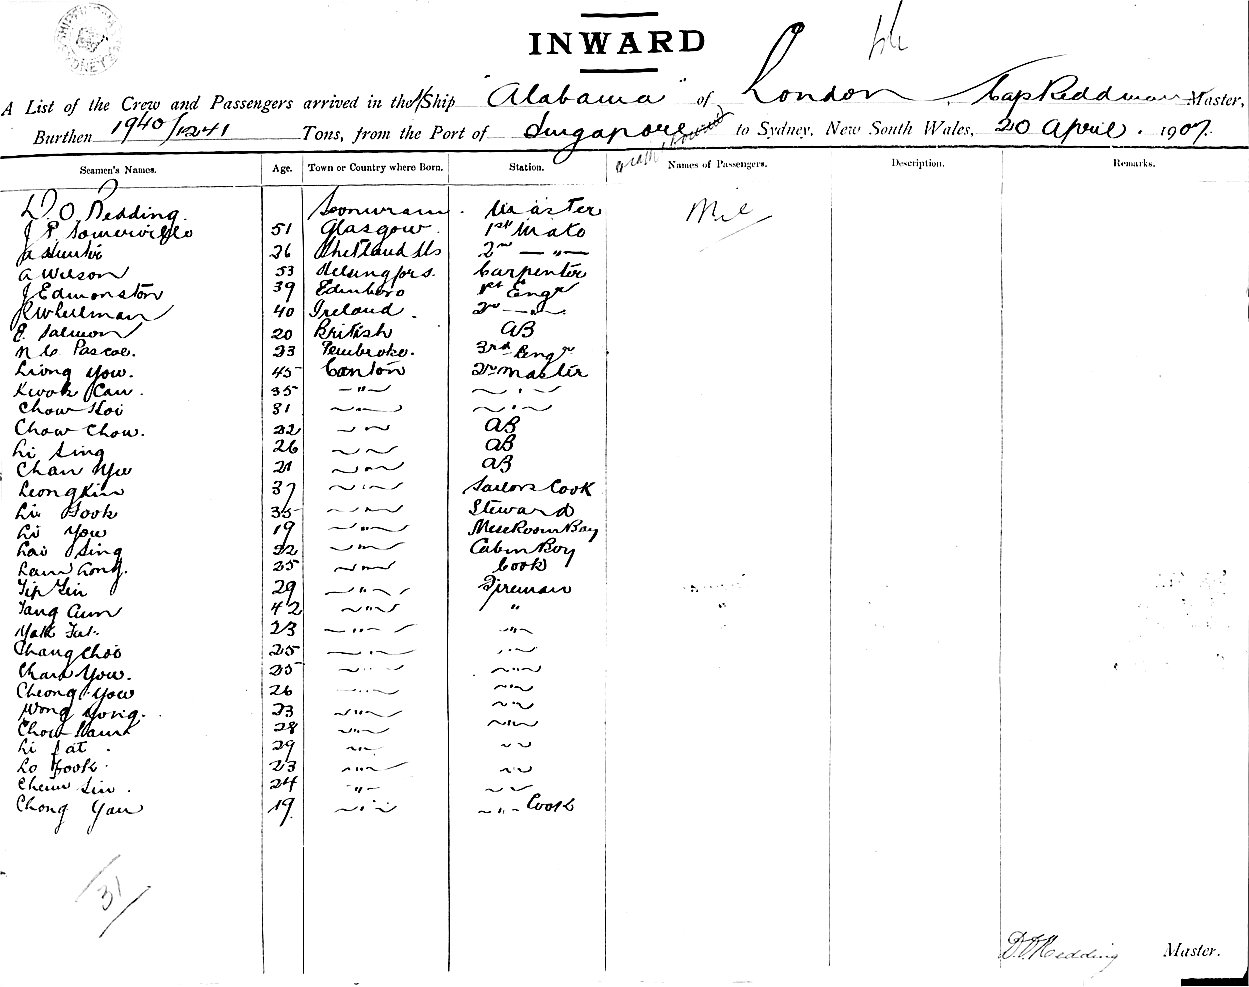 INWARD
A List of the Crew and Passengers arrived in the S/Ship "Alabama" of London, Cap Reddman Master,
Burthen 1940/1241 Tons, from the Port of Singapore to Sydney, New South Wales, 20 April. 1907.
Seamen's Names. Age. Town or Country where Born. Station. Names of Passengers. Description. Remarks.
D. O. Redding. Master Nil
J P Somerville 51 Glasgow. 1st Mate
26 Shetland Is 2nd — " —
A Wilson 53 Helsingfors. Carpenter
J Edmonston 39 Edinboro 1st Engr
40 Ireland. 2nd — " —
E. Salmon 20 British AB
N Lo Pascoe. 23 Pembroke. 3rd Engr
Leong You. 45 Canton 2nd Master
Kwok Can. 35 — " — — " —
Chow Hoi 31 — " — — " —
Chow Chow. 22 — " — AB
Li Sing 26 — " — AB
Chan Yiu 21 — " — AB
Leong Kin 37 — " — Sailors Cook
Li Fook 35 — " — Steward
Li You 19 — " — Mess Room Boy
Lai Sing 22 — " — Cabin Boy
Lam Cong. 35 — " — Cook
Yip Yin 29 — " — Fireman
Tang Cum 42 — " — "
Mak Fut. 23 — " — — " —
Chang Choi 25 — " — — " —
Chan You. 25 — " — — " —
Cheong You 26 — " — — " —
Wong Yong. 23 — " — — " —
Chow 28 — " — — " —
Li Fat. 29 — " — — " —
Lo Fook. 23 — " — — " —
Cheun Lin. 24 — " — — " —
Chong Yau 19 — " — — " — Cook
31
D. O. Redding Master.